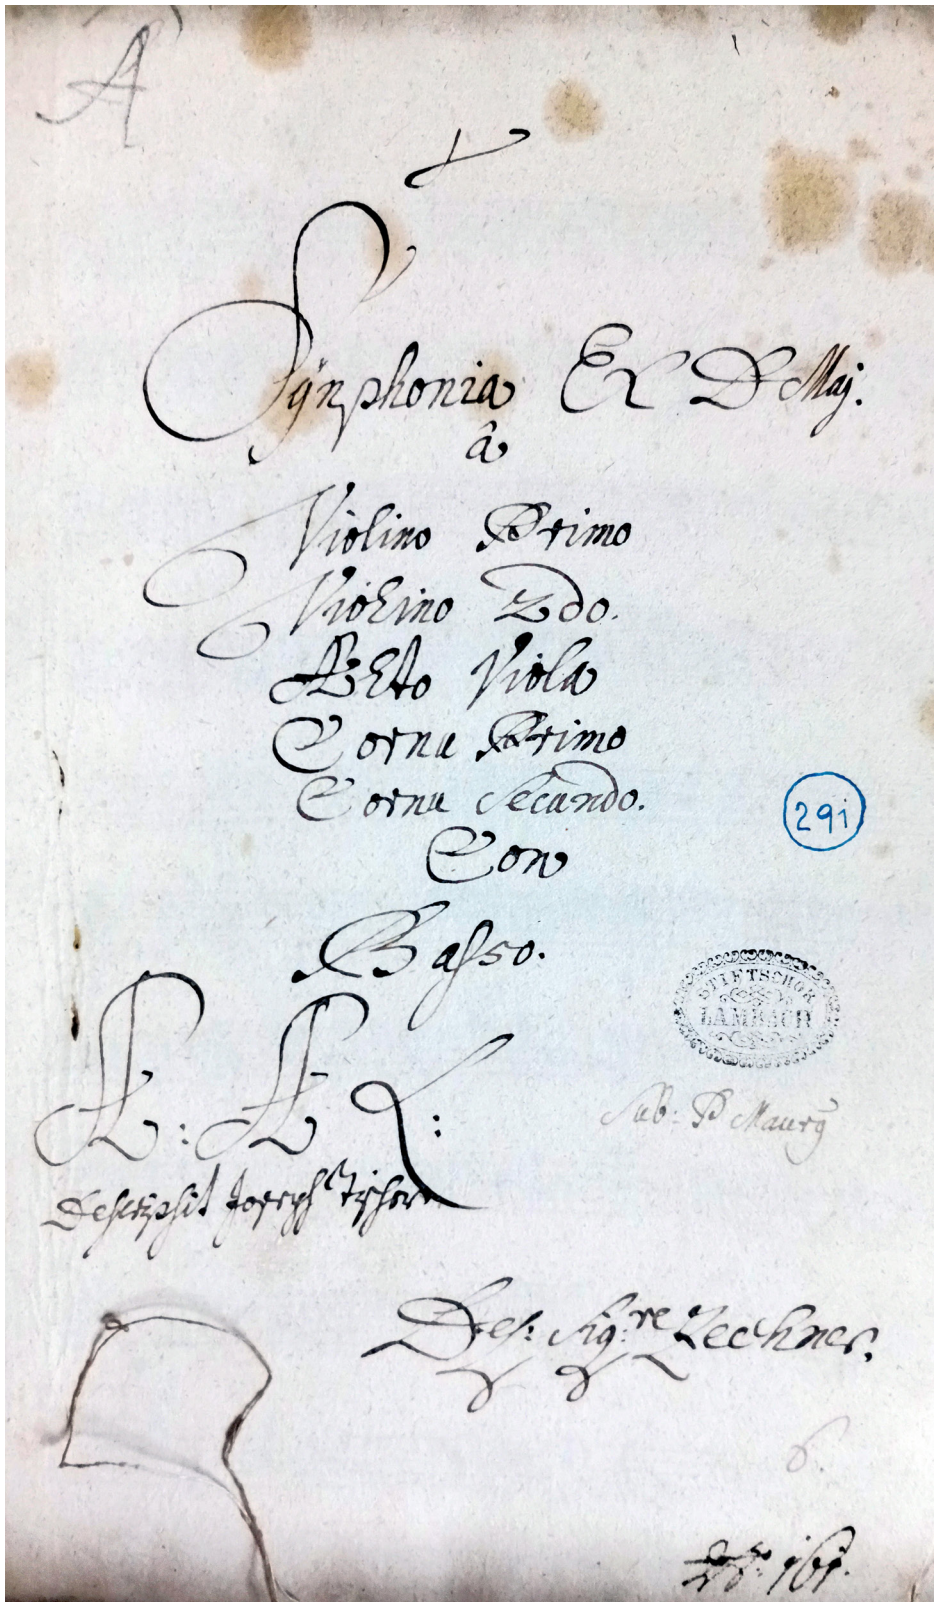 A
Synphonia Ex D Maj.
â
Violino Primo
Violino 2do.
Alto Viola
Cornu Primo
Cornu Secundo.
Con
Basso.
291
STIFTSCHOR
LAMBACH
A: A L:
Sub: P Maurÿ
Descripsit Joseph
Del: Sig:re Zechner.
6.
No: 161.